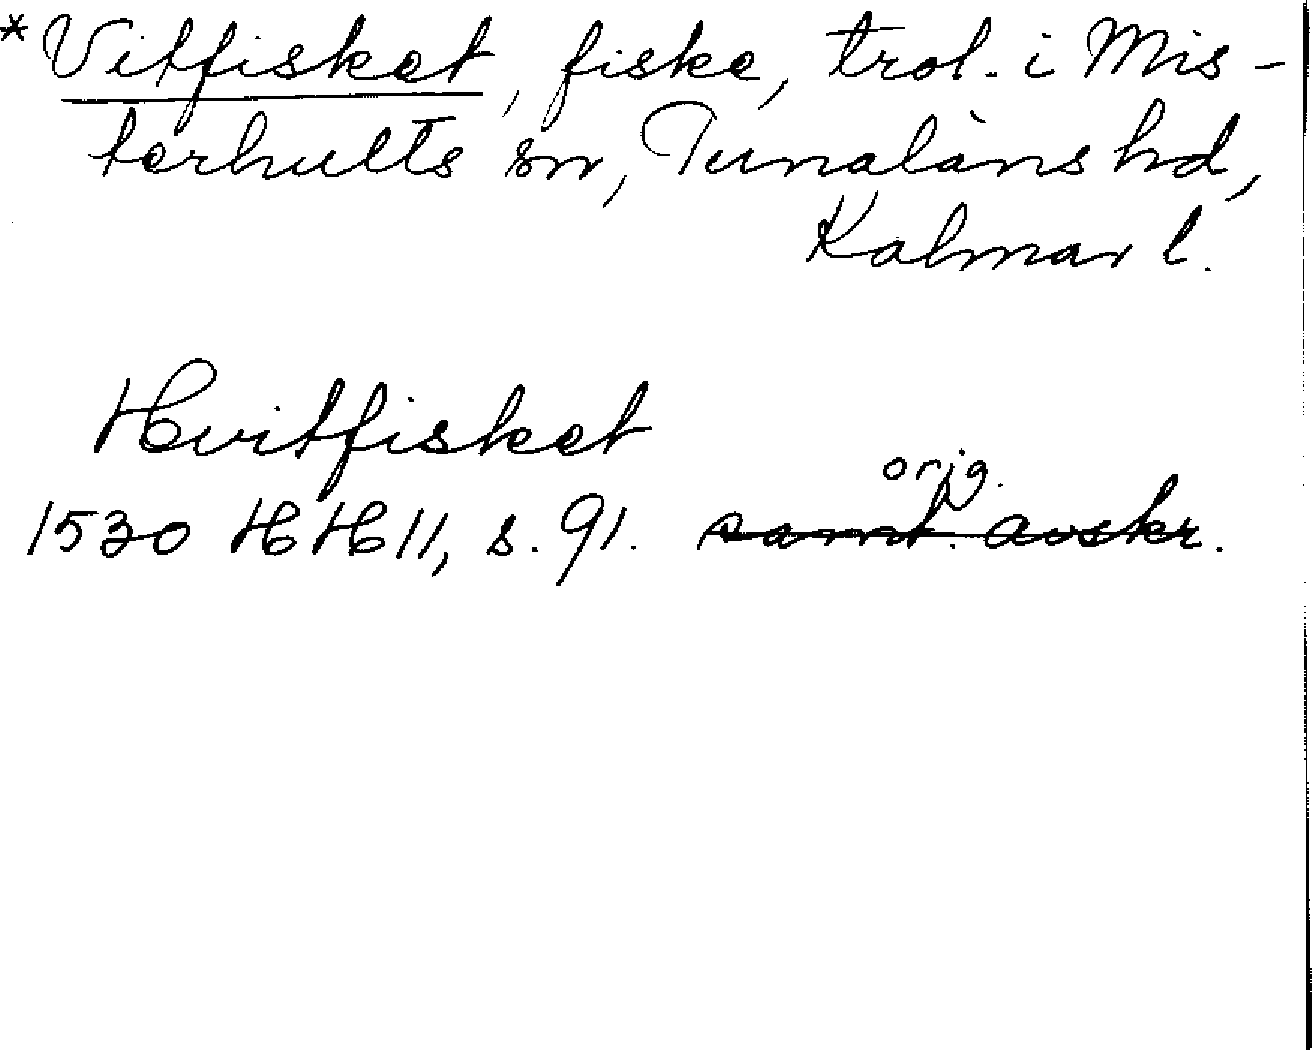 *Vitfisket, fiske, trol. i Mis-
terhults sn, Tunaläns hd,
Kalmar l.
Hvitfisket
orig.
1530 HH 11, s. 91. samt. avskr.